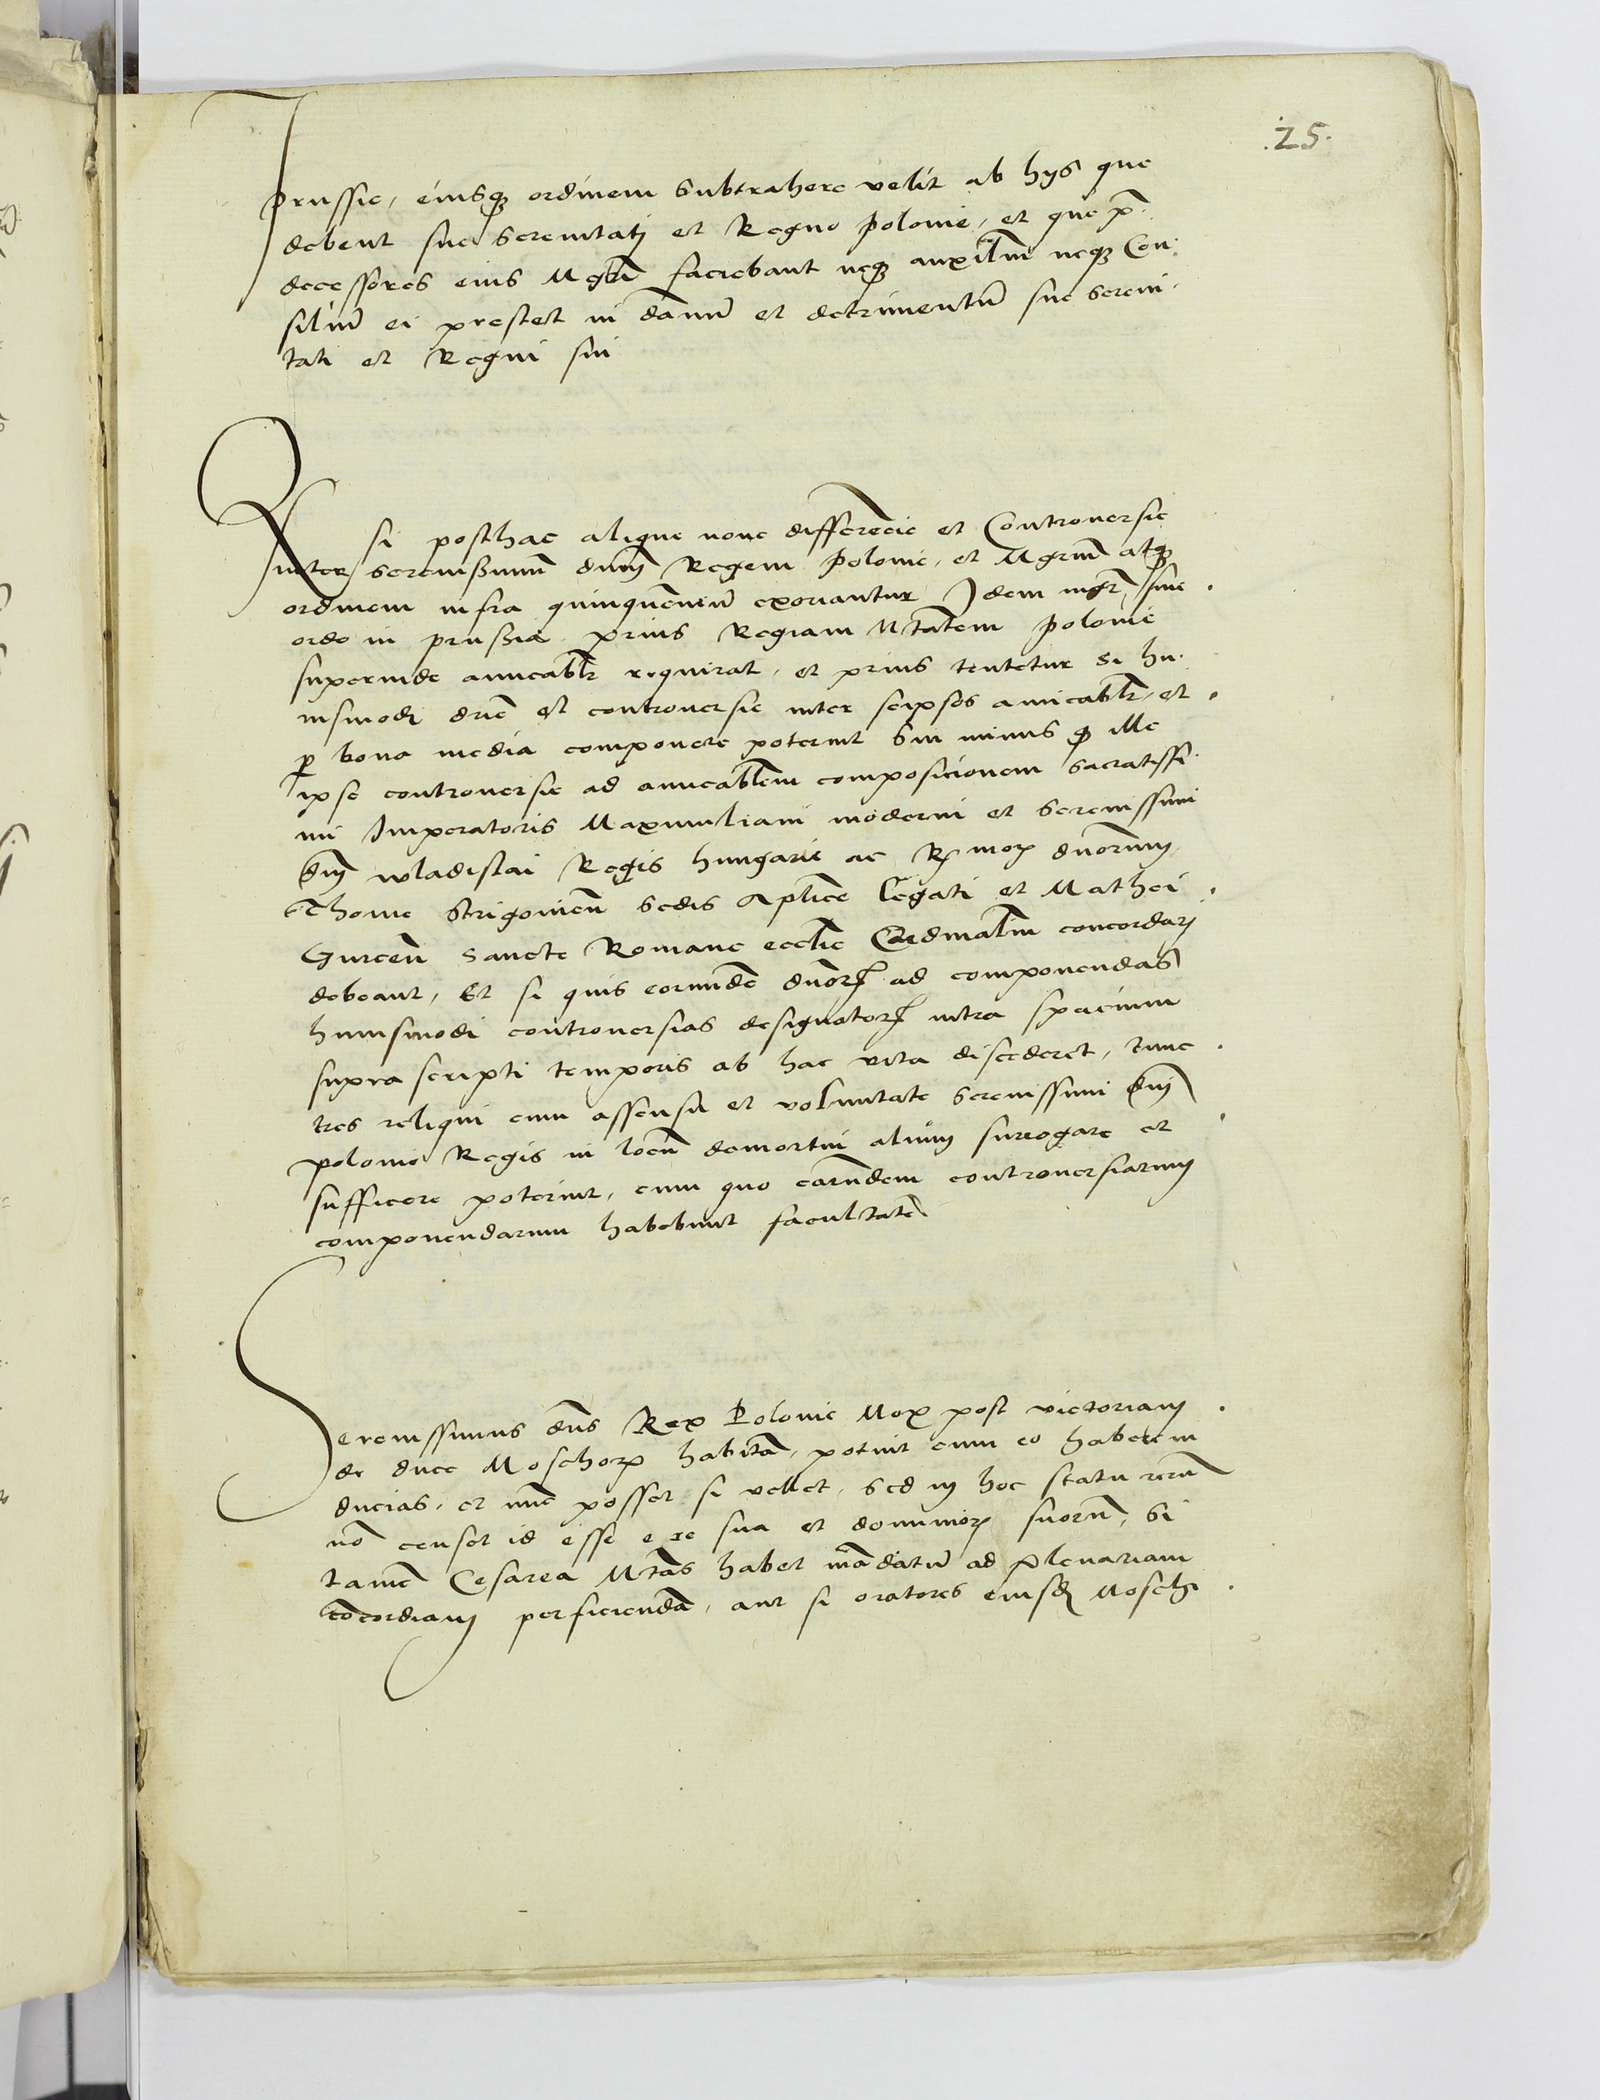 .25.
prussie, eiusq₃ ordinem Subtrahere velit ab hijs que
debent sue Serenitatj et Regno polonie, et que p̄
decessores eius Mgr̄i faciebant neq₃ auxiliū neq₃ Con
siliū ei prestet in dānū et detrimentū sue Sereni
tati et Regni sui
Q si posthac alique noue differēcie et Controuersie
inter Serenissimum dnm̄ Regem polonie, et Mgrm̄ atq₃
ordinem infra quinquēniū exoriantur Idem mgr̄, siue
ordo in prussia prius Regiam Mtatem polonie
superinde amicablr̄ requirat, et prius tentetur si hu
iusmodi dr̄ie et controuersie inter seipsos amicablr̄, et
ꝑ bona media componere poterint Sin minus ꝙ ille
ipse controuersie ad amicablem composicionem Sacratissi
mi Imperatoris Maximiliani moderni et Serenissimi
dnj̄ wladislai Regis hungarie ac Rmoꝝ duorum
Thome Strigonien̄ Sedis Aplice Legati et Mathei
Gurcen̄ Sancte Romane ecclie Cardinalim concordarj
debeant, Et si quis eorundē dnoꝝ ad componendas
huiusmodi controuersias designatoꝝ intra spacium
supra scripti temporis ab hac vita discederet, tunc
tres reliqui cum assensu et voluntate Serenissimi dnj̄
polonie Regis in locū demortui alium surrogare et
sufficere poterint, cum quo earundem controuersiarum
componendarum habebunt facultatē
Serenissimus dn̄s Rex Polonie Mox post victoriam
de duce Moschoꝝ habitā, potuit cum eo habere in
ducias, et nūc posset si vellet, Sed in hoc statu rerū
nō censet id esse e re sua et dominioꝝ suorū, Si
tamē Cesarea Mtas habet mādatū ad plenariam
cōcordiam perficiendā, aut si oratores eiusdē Moschi